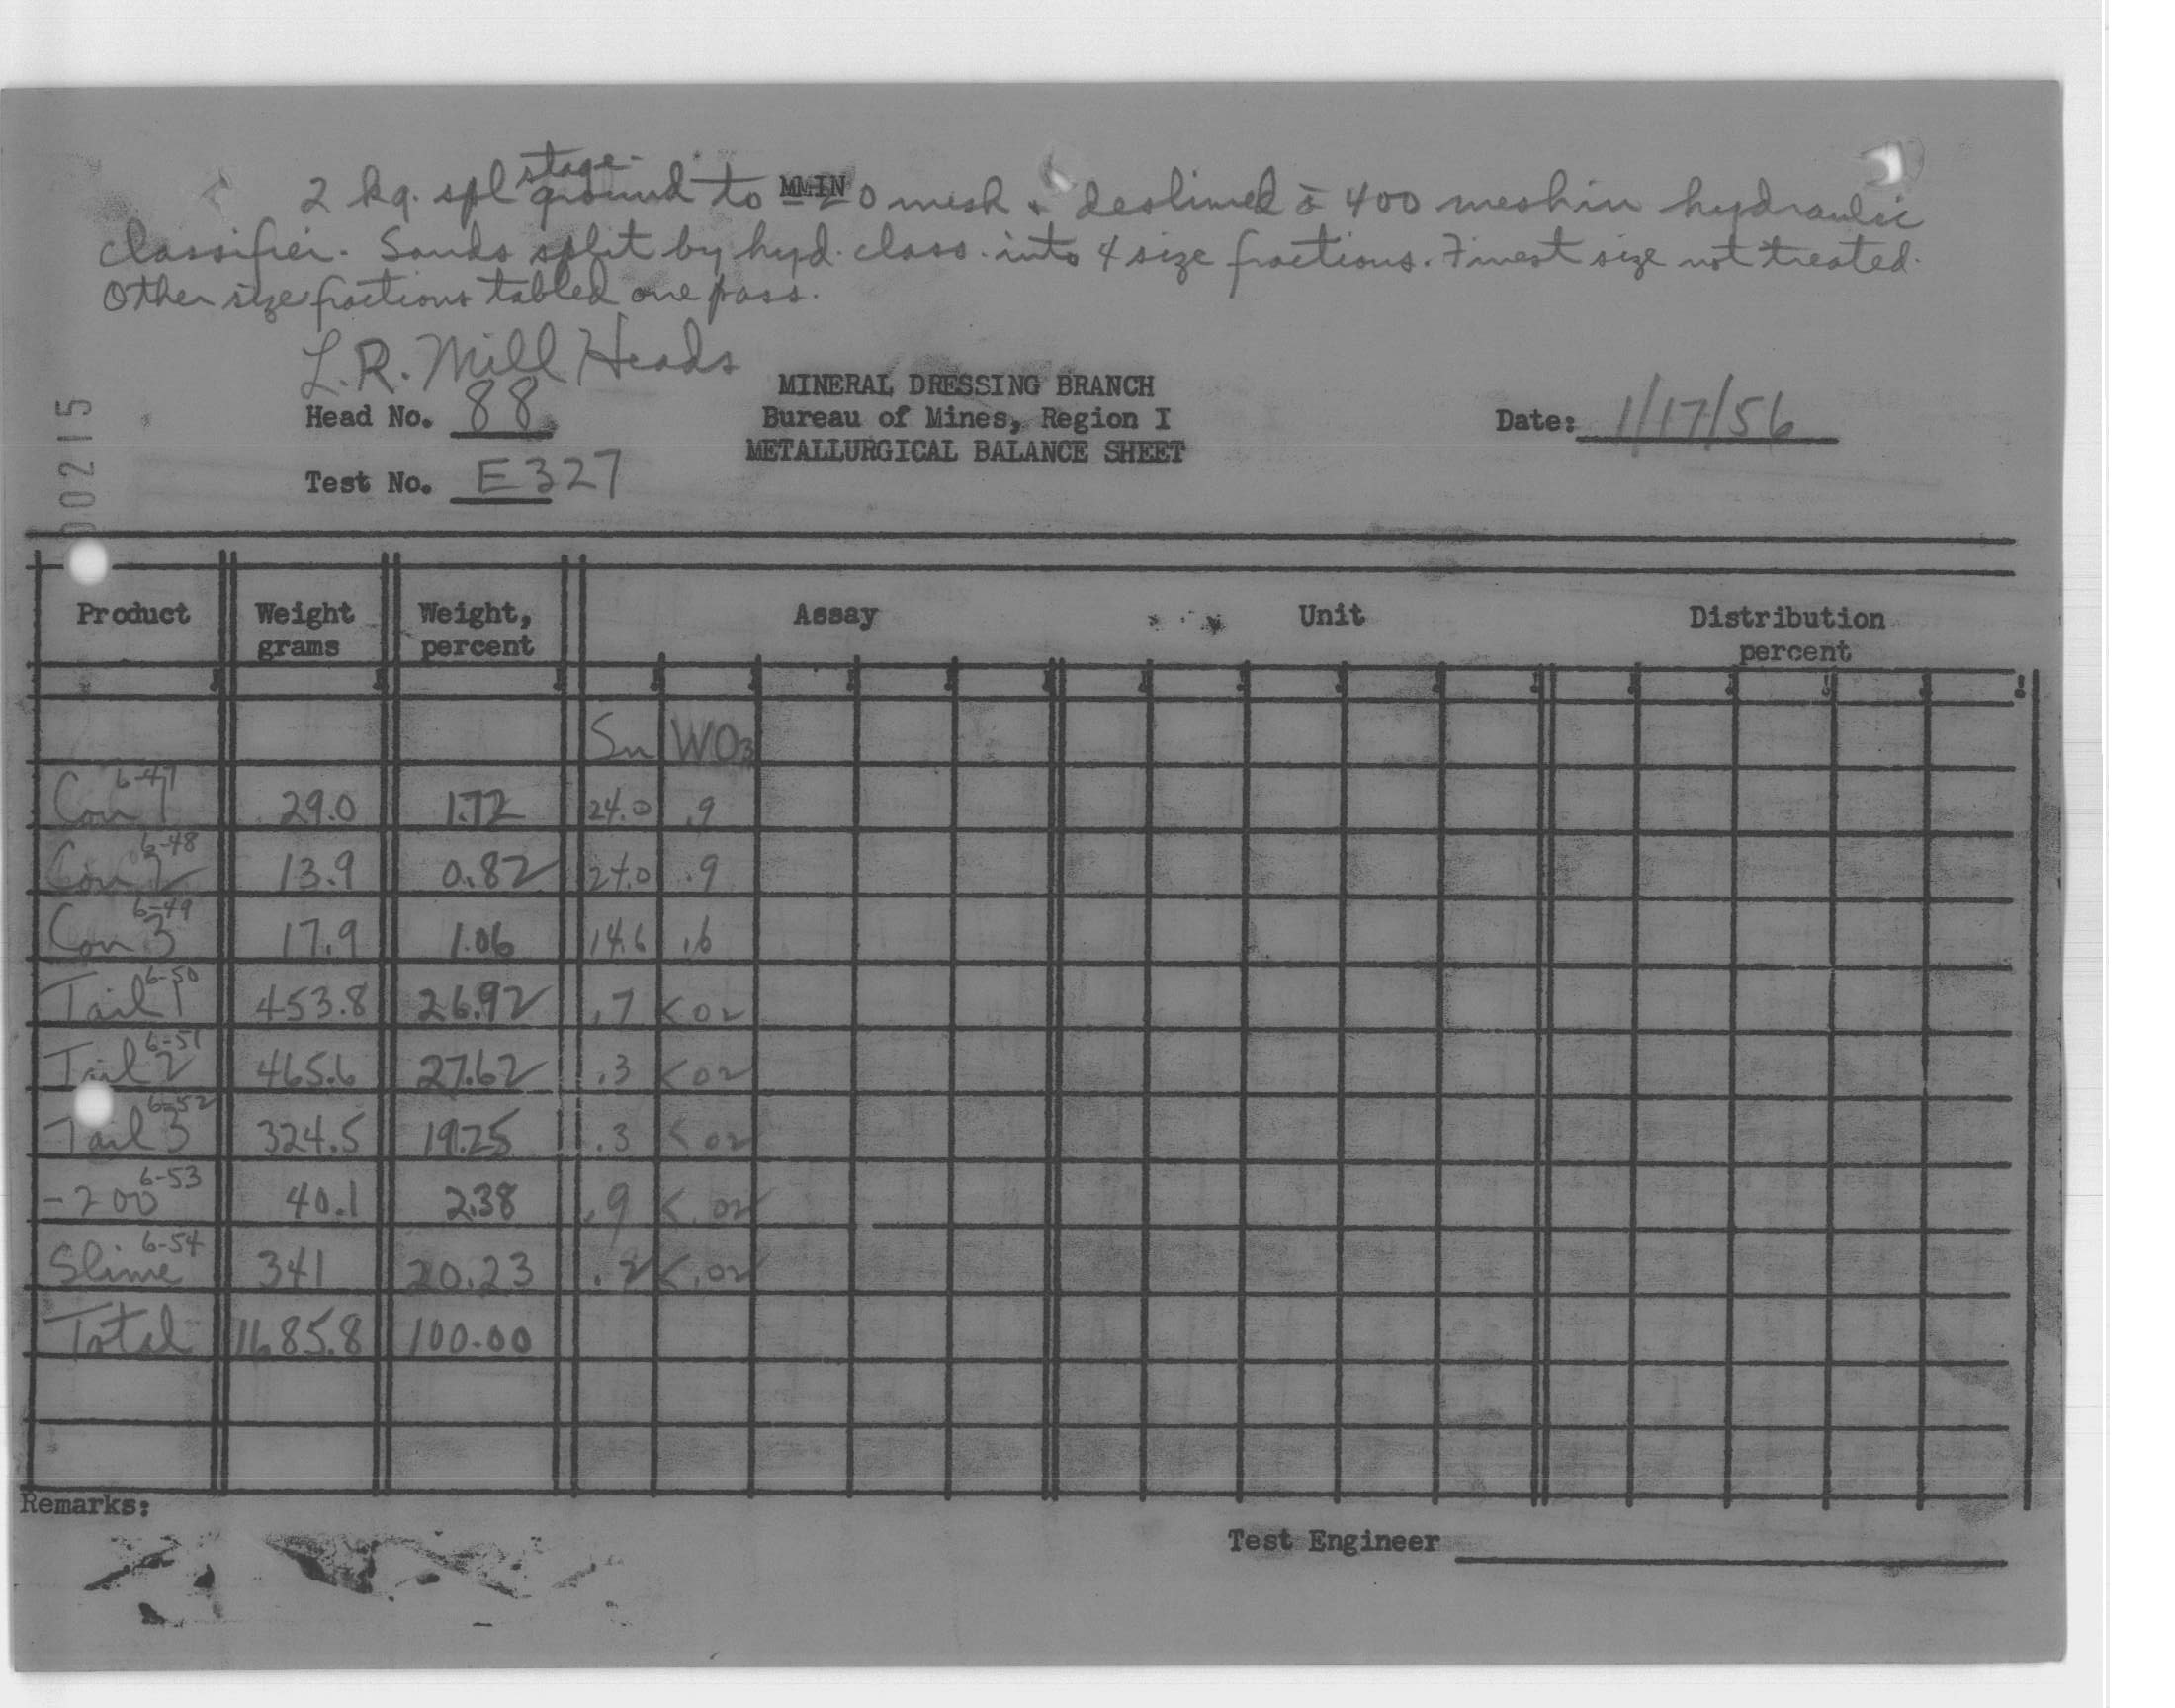 2 kg. spl stage-ground to 20 mesh & deslimed @ 400 mesh in hydraulic
classifier. Sands split by hyd. class. into 4 size fractions. Finest size not treated.
Other size fractions tabled one pass.
L.R. Mill Heads
MINERAL DRESSING BRANCH
Head No. 88 Bureau of Mines, Region I Date: 1/17/56
METALLURGICAL BALANCE SHEET
Test No. E327
00215
Product Weight grams Weight, percent Assay Unit Distribution percent
Sn WO3
Con 1 6-47 29.0 1.72 24.0 .9
Con 2 6-48 13.9 0.82 24.0 .9
Con 3 6-49 17.9 1.06 14.6 .6
Tail 1 6-50 453.8 26.92 .7 <02
Tail 2 6-51 465.6 27.62 .3 <02
Tail 3 6-52 324.5 19.25 .3 <02
-200 6-53 40.1 2.38 .9 <.02
Slime 6-54 341 20.23 .2 <.02
Total 1685.8 100.00
Remarks:
Test Engineer